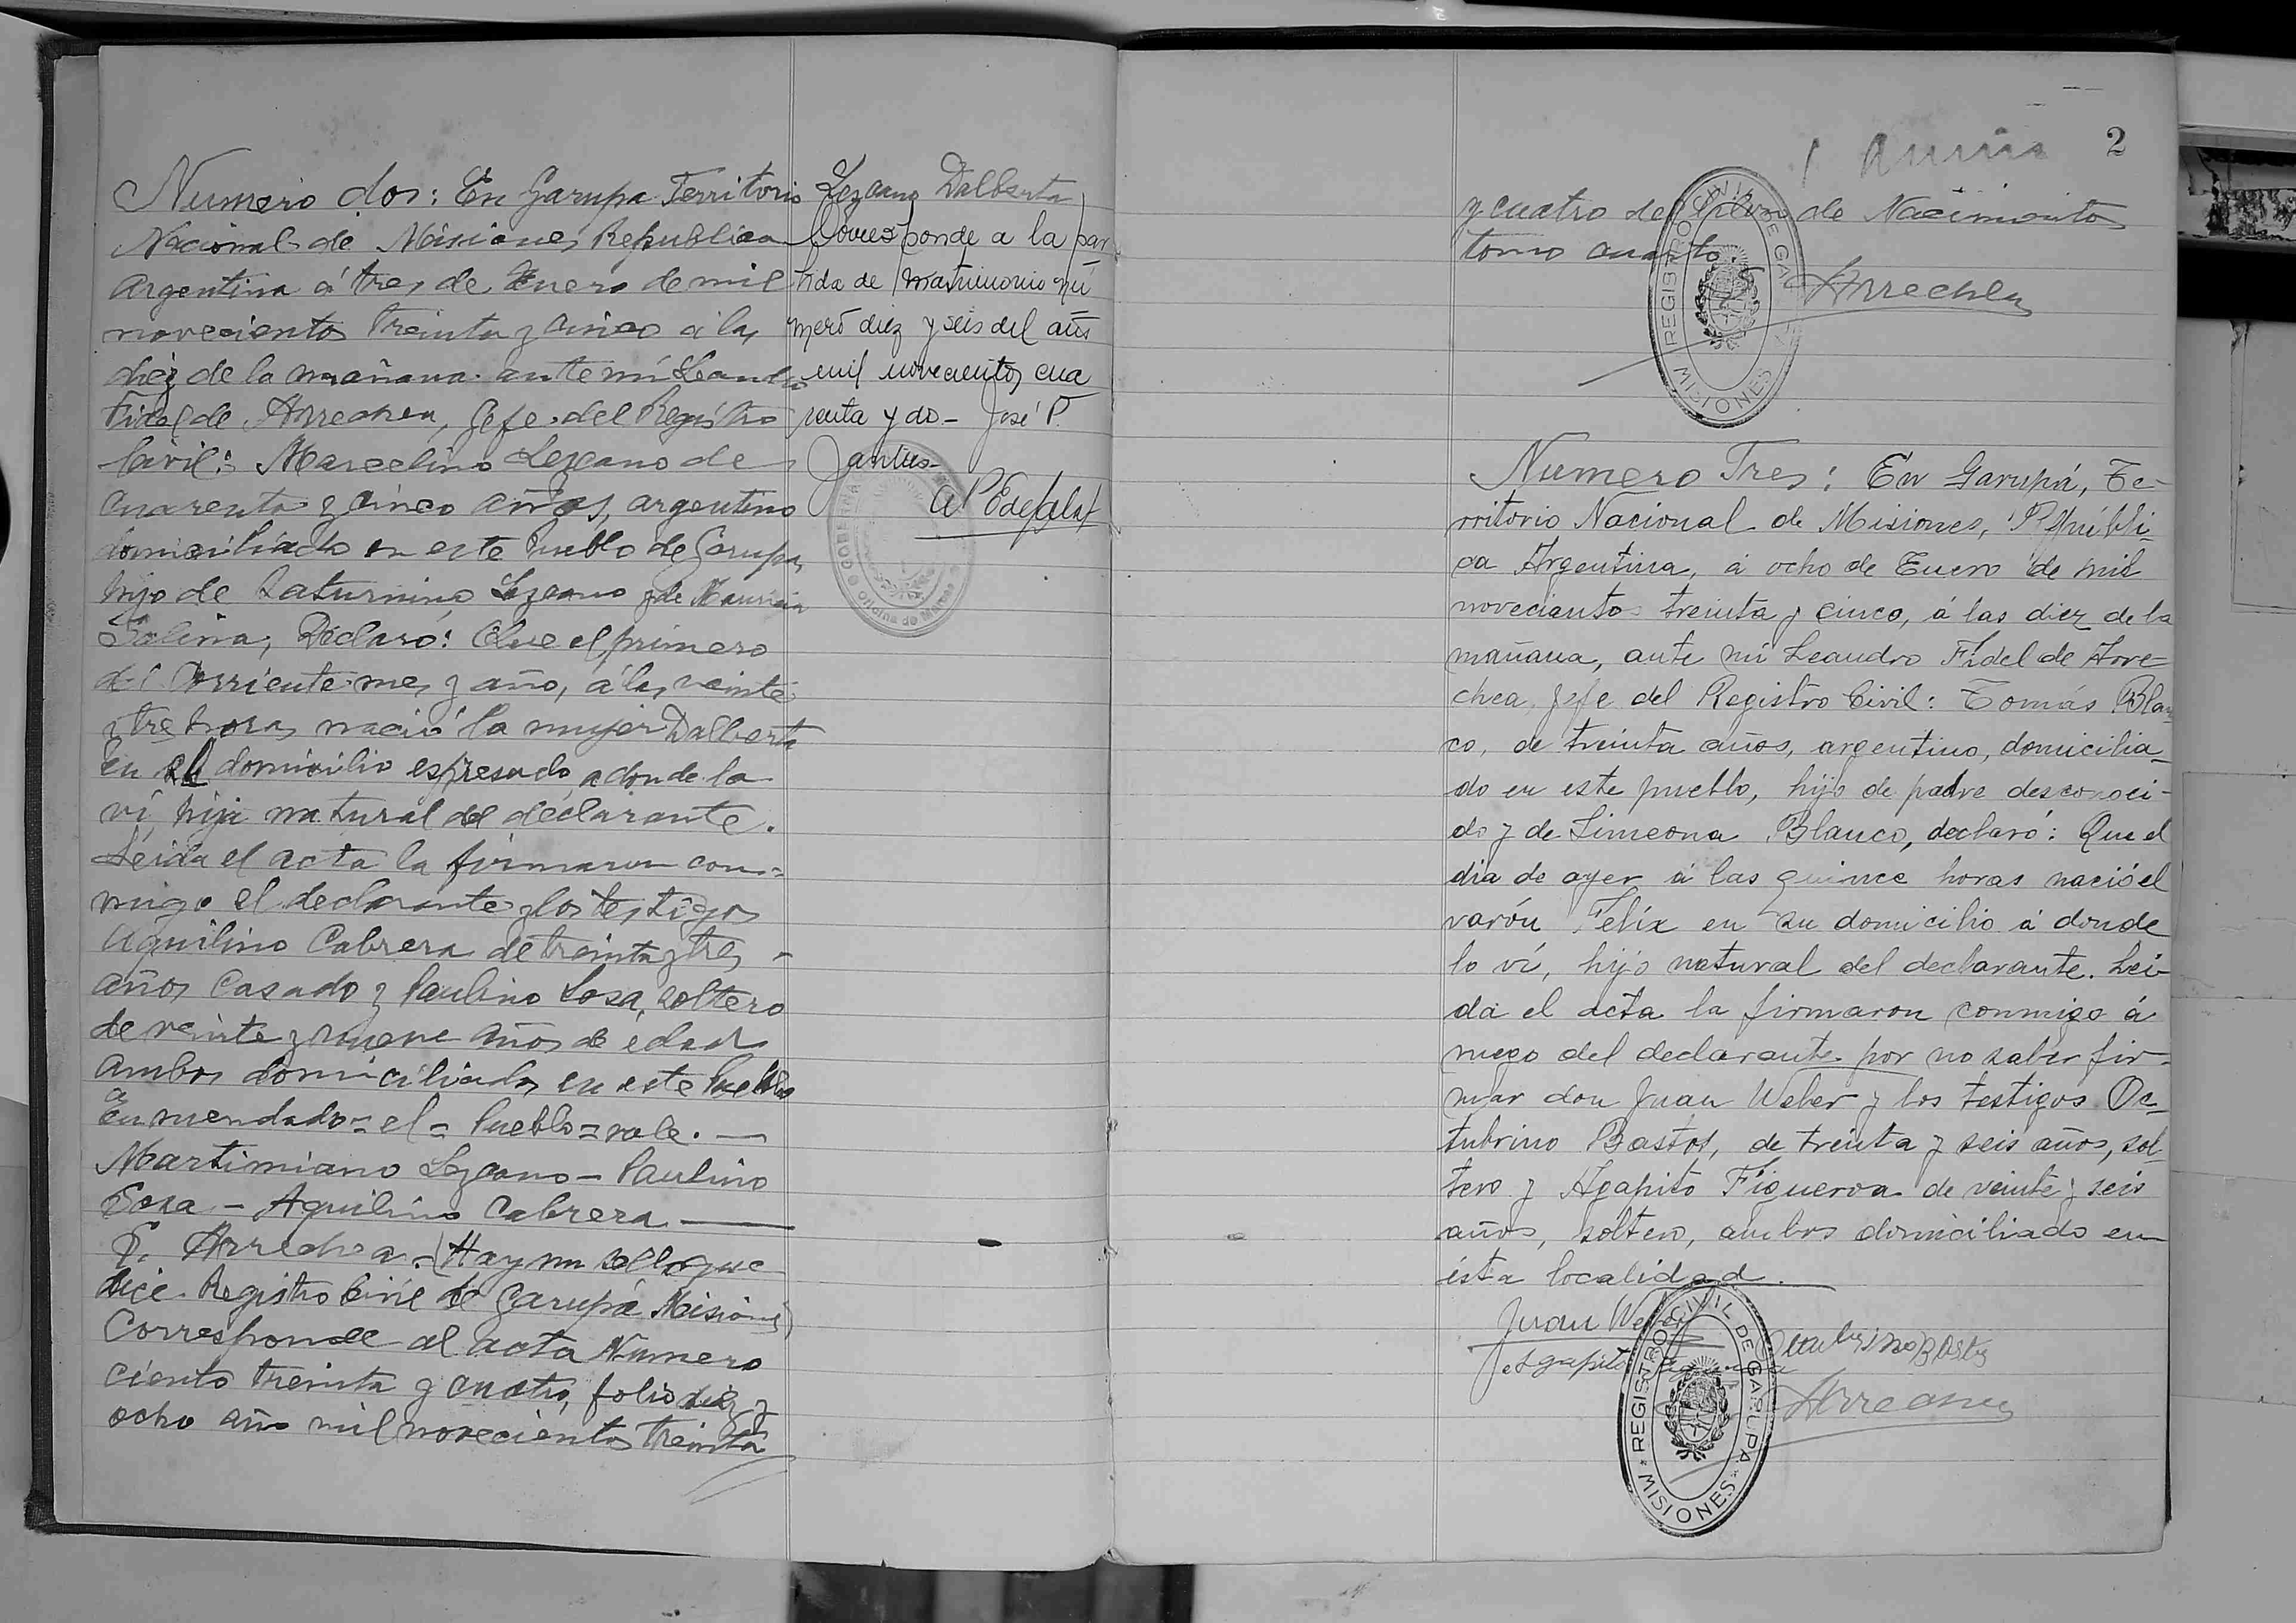 Numero dos: En Garupa Territorio
Nacional de Misiones Republica
Argentina á tres de Enero de mil
novecientos treinta y cinco a las
diez de la mañana ante mí Leandro
Fidel de Arrechea, Jefe del Registro
Civil: Marcelino Lezcano de
cuarenta y cinco años, argentino
domiciliado en este Pueblo de Garupa,
hijo de Saturnino Lezcano y de
Salina, Declaró: Que el primero
del Corriente mes y año, á las veinte
y tre horas nació la mujer Dalberta
en el domicilio espresado a donde la
ví, hija natural del declarante.
Leida el acta la firmaron con=
migo el declarante y los testigos
Aquilino Cabrera de treinta y tres
años Casado y Paulino Sosa, soltero
de veinte y nueve años de edad
ambos domiciliados en este Pueblo
Enmendado= el= Pueblo= vale. —
Martimiano Lezcano — Paulino
Sosa — Aquilino Cabrera —
F. Arrechea. (Hay un sello que
dice Registro Civil de Garupá Misiones)
Corresponde al acta Numero
ciento treinta y cuatro, folio diez y
ocho año mil novecientos treinta
Lezcano Dalberta
Corresponde a la par
tida de matrimonio nú
mero diez y seis del año
mil novecientos cua
renta y do- José P.
Santus-
2
y cuatro del Libro de Nacimientos
tomo cuarto.
Arrechea
REGISTRO CIVIL DE GARUPA
MISIONES
Numero Tres: En Garupá, Te-
rritorio Nacional de Misiones, Repúbli-
ca Argentina, á ocho de Enero de mil
novecientos treinta y cinco, á las diez de la
mañana, ante mi Leandro Fidel de Arre-
chea, Jefe del Registro Civil: Tomás Blan
co, de treinta años, argentino, domicilia-
do en este pueblo, hijo de padre desconoci-
do y de Simeona Blanco, declaró: Que el
dia de ayer á las quince horas nació el
varón Felíx en su domicilio á donde
lo ví, hijo natural del declarante. Lei-
da el acta la firmaron conmigo á
ruego del declarante por no saber fir-
mar don Juan Weber y los testigos Oc-
tubrino Bastos, de treinta y seis años, sol-
tero y Agapito Figueroa de veinte y seis
años, soltero, ambos domiciliado en
ésta localidad.
Juan Weber
Octubrino Bastos
Agapito Figueroa
Arrechea
REGISTRO CIVIL DE GARUPA
MISIONES